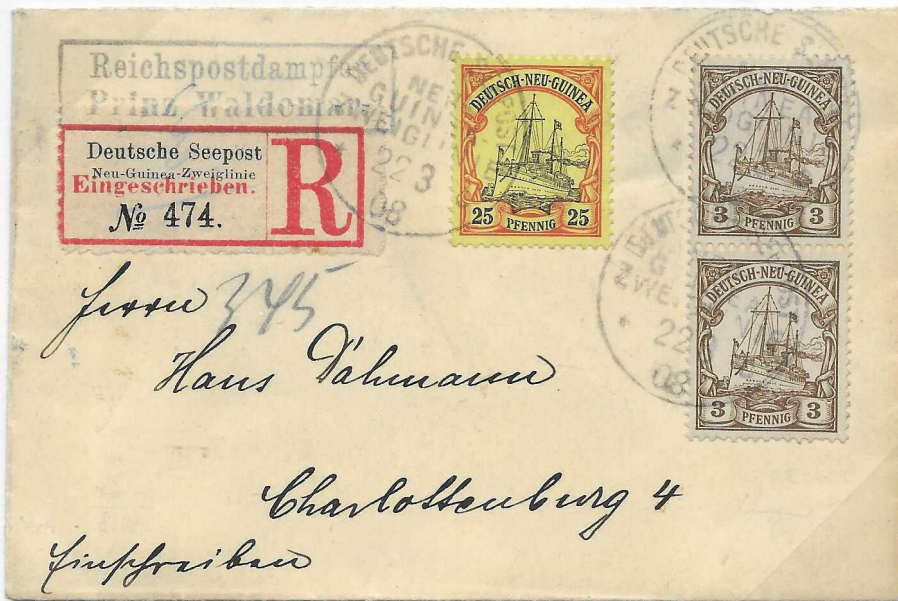 Reichspostdampfer
Prinz Waldemar.
Deutsche Seepost
Neu-Guinea-Zweiglinie
Eingeschrieben.
R
№ 474.
DEUTSCHE
NEU
GUINEA
ZWEIGLINIE
22 3
08
DEUTSCH-NEU-GUINEA
25 PFENNIG 25
DEUTSCHE S
DEUTSCH-NEU-GUINEA
3 PFENNIG 3
22
08
DEUTSCH-NEU-GUINEA
3 PFENNIG 3
345
Herrn
Hans Dähmann
Charlottenburg 4
Einschreiben